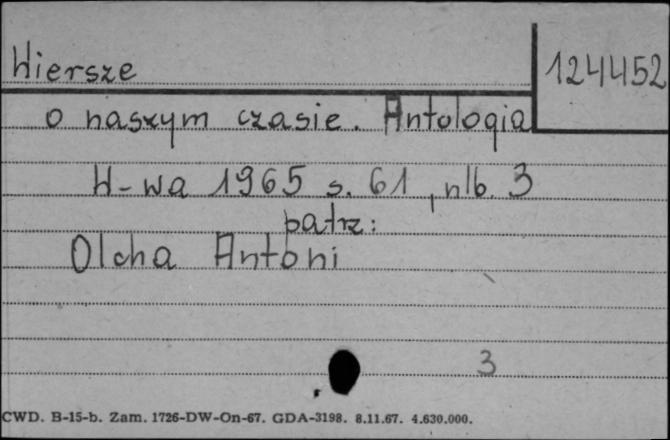 Wiersze
124452
o naszym czasie. Antologia
W-wa 1965 s. 61, nlb. 3
patrz:
Olcha Antoni
3
CWD. B-15-b. Zam. 1726-DW-On-67. GDA-3198. 8.11.67. 4.630.000.